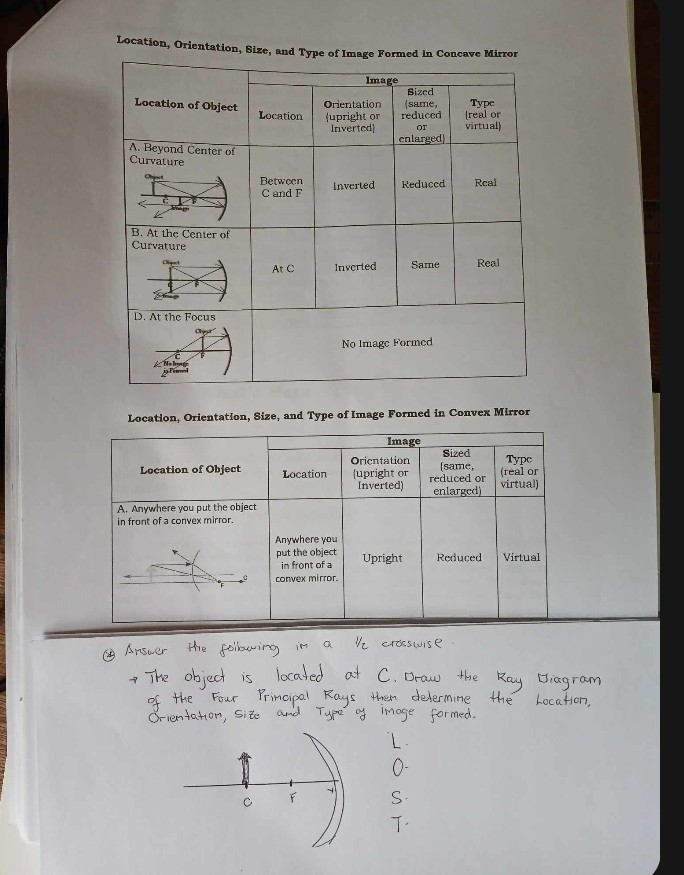 Location, Orientation, Size, and Type of Image Formed in Concave Mirror
Image
Location of Object
Location
Orientation
(upright or
Inverted)
Sized
(same,
reduced
or
enlarged)
Type
(real or
virtual)
A. Beyond Center of
Curvature
Object
C
F
Image
Between
C and F
Inverted
Reduced
Real
B. At the Center of
Curvature
Object
C
F
Image
At C
Inverted
Same
Real
D. At the Focus
Object
C
F
No Image
is Formed
No Image Formed
Location, Orientation, Size, and Type of Image Formed in Convex Mirror
Image
Location of Object
Location
Orientation
(upright or
Inverted)
Sized
(same,
reduced or
enlarged)
Type
(real or
virtual)
A. Anywhere you put the object
in front of a convex mirror.
F
C
Anywhere you
put the object
in front of a
convex mirror.
Upright
Reduced
Virtual
Answer the following in a 1/2 crosswise.
→ The object is located at C. Draw the Ray Diagram
of the Four Principal Rays then determine the Location,
Orientation, Size and Type of image formed.
C
F
V
L.
O-
S.
T.